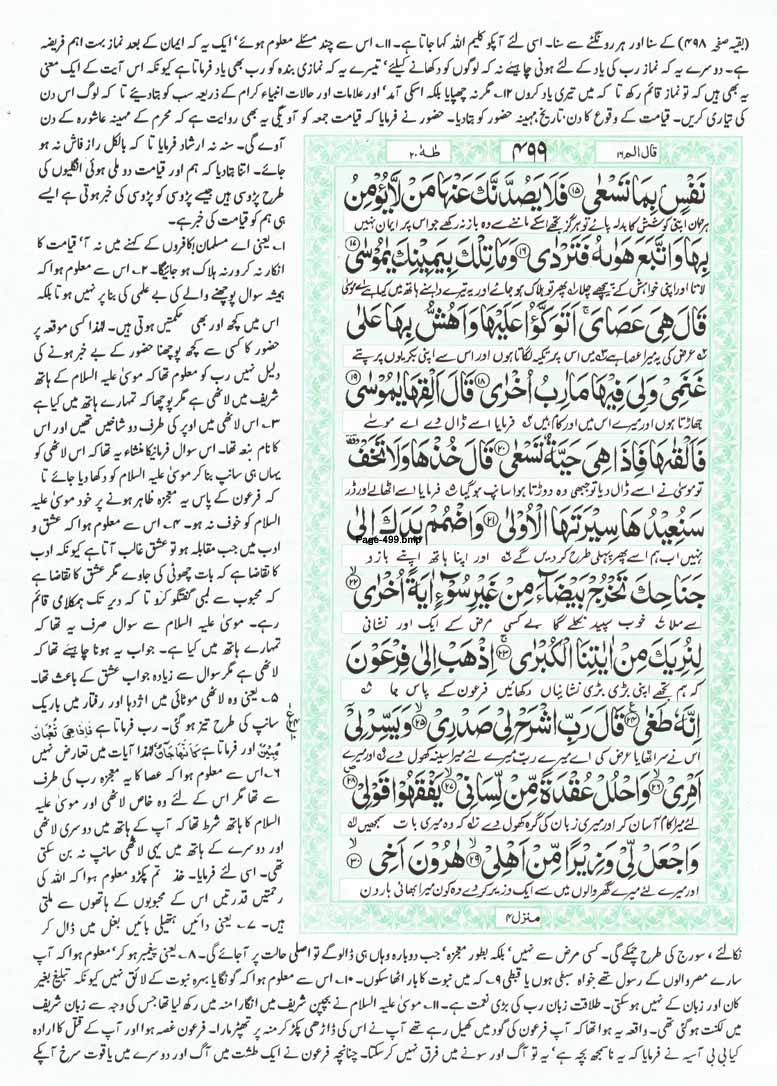 (بقیہ صفحہ ۴۹۸) کے سنا اور ہر رونگٹے سے سنا۔ اسی لئے آپکو کلیم اللہ کہا جاتا ہے۔ ۱۱۔ اس سے چند مسئلے معلوم ہوئے' ایک یہ کہ ایمان کے بعد نماز بہت اہم فریضہ
ہے۔ دوسرے یہ کہ نماز رب کی یاد کے لئے ہونی چاہیئے نہ کہ لوگوں کو دکھانے کیلئے' تیسرے یہ کہ نمازی بندہ کو رب بھی یاد فرماتا ہے کیونکہ اس آیت کے ایک معنی
یہ بھی ہیں کہ تو نماز قائم رکھ تا کہ میں تیری یاد کروں ۱۲۔ مگر نہ چھپایا بلکہ اسکی آمد' اور علامات اور حالات انبیاء کرام کے ذریعہ سب کو بتا دیئے تا کہ لوگ اس دن
کی تیاری کریں۔ قیامت کے وقوع کا دن' تاریخ' مہینہ حضور کو بتا دیا۔ حضور نے فرمایا کہ قیامت جمعہ کو آویگی یہ بھی روایت ہے کہ محرم کے مہینہ عاشورہ کے دن
آوے گی۔ سنہ نہ ارشاد فرمایا تا کہ بالکل راز فاش نہ ہو
جائے۔ اتنا بتا دیا کہ ہم اور قیامت دو ملی ہوئی انگلیوں کی
طرح پڑوسی ہیں جیسے پڑوسی کو پڑوسی کی خبر ہوتی ہے ایسے
ہی ہم کو قیامت کی خبر ہے۔
۱۔ یعنی اے مسلمان! کافروں کے کہنے میں نہ آ' قیامت کا
انکار نہ کر ورنہ ہلاک ہو جائیگا۔ ۲۔ اس سے معلوم ہوا کہ
ہمیشہ سوال پوچھنے والے کی بے علمی کی بنا پر نہیں ہوتا بلکہ
اس میں کچھ اور بھی حکمتیں ہوتی ہیں۔ لہٰذا کسی موقعہ پر
حضور کا کسی سے کچھ پوچھنا حضور کے بے خبر ہونے کی
دلیل نہیں رب کو معلوم تھا کہ موسیٰ علیہ السلام کے ہاتھ
شریف میں لاٹھی ہے مگر پوچھا کہ تمہارے ہاتھ میں کیا ہے
۳۔ اس لاٹھی میں اوپر کی طرف دو شاخیں تھیں اور اس
کا نام بنعہ تھا۔ اس سوال فرمانیکا منشاء یہ تھا کہ اس لاٹھی کو
یہاں ہی سانپ بنا کر موسیٰ علیہ السلام کو دکھا دیا جائے تا
کہ فرعون کے پاس یہ معجزہ ظاہر ہونے پر خود موسیٰ علیہ
السلام کو خوف نہ ہو۔ ۴۔ اس سے معلوم ہوا کہ عشق و
ادب میں جب مقابلہ ہو تو عشق غالب آتا ہے کیونکہ ادب
کا تقاضا ہے کہ بات چھوٹی کی جاوے مگر عشق کا تقاضا ہے
کہ محبوب سے لمبی گفتگو کرو تا کہ دیر تک ہمکلامی قائم
رہے۔ موسیٰ علیہ السلام سے سوال صرف یہ تھا کہ
تمہارے ہاتھ میں کیا ہے۔ جواب یہ ہونا چاہیئے تھا کہ
لاٹھی ہے مگر سوال سے زیادہ جواب عشق کے باعث تھا۔
۵۔ یعنی وہ لاٹھی موٹائی میں اژدہا اور رفتار میں باریک
سانپ کی طرح تیز ہو گئی۔ رب فرماتا ہے فَإِذَا هِيَ ثُعْبَانٌ
مُّبِيْنٌ اور فرماتا ہے كَأَنَّهَا جَآنٌّ لہٰذا آیات میں تعارض نہیں
۶۔ اس سے معلوم ہوا کہ عصا کا یہ معجزہ رب کی طرف
سے تھا مگر اس کے لئے وہ خاص لاٹھی اور موسیٰ علیہ
السلام کا ہاتھ شرط تھا کہ آپ کے ہاتھ میں دوسری لاٹھی
اور دوسرے کے ہاتھ میں یہی لاٹھی سانپ نہ بن سکتی
تھی۔ اسی لئے فرمایا۔ خذ تم پکڑو معلوم ہوا کہ اللہ کی
رحمتیں قدرتیں اس کے محبوبوں کے ہاتھوں سے ملتی
ہیں۔ ۷۔ یعنی دائیں ہتھیلی بائیں بغل میں ڈال کر
قال الم ۱۶
۴۹۹
طٰهٰ ۲۰
نَفْسٍۭ بِمَا تَسْعٰى ۝۱۵ فَلَا يَصُدَّنَّكَ عَنْهَا مَنْ لَّا يُؤْمِنُ
ہر جان اپنی کوشش کا بدلہ پائے تو ہرگز تجھے اسکے ماننے سے وہ باز نہ رکھے جو اس پر ایمان نہیں
بِهَا وَاتَّبَعَ هَوٰىهُ فَتَرْدٰى ۝۱۶ وَمَا تِلْكَ بِيَمِيْنِكَ يٰمُوْسٰى ۝۱۷
لاتا اور اپنی خواہش کے پیچھے چلا پھر تو ہلاک ہو جائے اور یہ تیرے داہنے ہاتھ میں کیا ہے اے موسیٰ
قَالَ هِيَ عَصَايَ ۚ اَتَوَكَّؤُا عَلَيْهَا وَاَهُشُّ بِهَا عَلٰى
عرض کی یہ میرا عصا ہے میں اس پر تکیہ لگاتا ہوں اور اس سے اپنی بکریوں پر پتے
غَنَمِيْ وَلِيَ فِيْهَا مَاٰرِبُ اُخْرٰى ۝۱۸ قَالَ اَلْقِهَا يٰمُوْسٰى ۝۱۹
جھاڑتا ہوں اور میرے اس میں اور کام ہیں فرمایا اسے ڈال دے اے موسیٰ
فَاَلْقٰىهَا فَاِذَا هِيَ حَيَّةٌ تَسْعٰى ۝۲۰ قَالَ خُذْهَا وَلَا تَخَفْ
تو موسیٰ نے اسے ڈال دیا تو جبھی وہ دوڑتا ہوا سانپ ہو گیا فرمایا اسے اٹھا لے اور ڈر
سَنُعِيْدُهَا سِيْرَتَهَا الْاُوْلٰى ۝۲۱ وَاضْمُمْ يَدَكَ اِلٰى
Page-499.bmp
نہیں اب ہم اسے پھر پہلی طرح کر دیں گے اور اپنا ہاتھ اپنے بازو
جَنَاحِكَ تَخْرُجْ بَيْضَآءَ مِنْ غَيْرِ سُوْٓءٍ اٰيَةً اُخْرٰى ۝۲۲
سے ملا خوب سپید نکلے گا بے کسی مرض کے ایک اور نشانی
لِنُرِيَكَ مِنْ اٰيٰتِنَا الْكُبْرٰى ۝۲۳ اِذْهَبْ اِلٰى فِرْعَوْنَ
کہ ہم تجھے اپنی بڑی بڑی نشانیاں دکھائیں فرعون کے پاس جا
اِنَّهٗ طَغٰى ۝۲۴ قَالَ رَبِّ اشْرَحْ لِيْ صَدْرِيْ ۝۲۵ وَيَسِّرْ لِيْ
اس نے سر اٹھایا عرض کی اے میرے رب میرے لئے میرا سینہ کھول دے اور میرے
اَمْرِيْ ۝۲۶ وَاحْلُلْ عُقْدَةً مِّنْ لِّسَانِيْ ۝۲۷ يَفْقَهُوْا قَوْلِيْ ۝۲۸
لئے میرا کام آسان کر اور میری زبان کی گرہ کھول دے کہ وہ میری بات سمجھیں
وَاجْعَلْ لِّيْ وَزِيْرًا مِّنْ اَهْلِيْ ۝۲۹ هٰرُوْنَ اَخِي ۝۳۰
اور میرے لئے میرے گھر والوں میں سے ایک وزیر کر دے وہ کون میرا بھائی ہارون
منزل ۴
نکالئے، سورج کی طرح چمکے گی۔ کسی مرض سے نہیں' بلکہ بطور معجزہ' جب دوبارہ وہاں ہی ڈالو گے تو اصلی حالت پر آ جائے گی۔ ۸۔ یعنی پیغمبر ہو کر' معلوم ہوا کہ آپ
سارے مصر والوں کے رسول تھے خواہ سبطی ہوں یا قبطی ۹۔ کہ میں نبوت کا بار اٹھا سکوں۔ ۱۰۔ اس سے معلوم ہوا کہ گونگا یا بہرہ نبوت کے لائق نہیں کیونکہ تبلیغ بغیر
کان اور زبان کے نہیں ہو سکتی۔ طلاقت زبان رب کی بڑی نعمت ہے۔ ۱۱۔ موسیٰ علیہ السلام نے بچپن شریف میں انگارا منہ میں رکھ لیا تھا جس کی وجہ سے زبان شریف
میں لکنت ہو گئی تھی۔ واقعہ یہ ہوا تھا کہ آپ فرعون کی گود میں کھیل رہے تھے آپ نے اس کی داڑھی پکڑ کر منہ پر تھپڑ مارا۔ فرعون غصہ ہوا اور آپ کے قتل کا ارادہ
کیا بی بی آسیہ نے فرمایا کہ یہ نا سمجھ بچہ ہے' یہ تو آگ اور سونے میں فرق نہیں کر سکتا۔ چنانچہ فرعون نے ایک طشت میں آگ اور دوسرے میں یاقوت سرخ آپکے